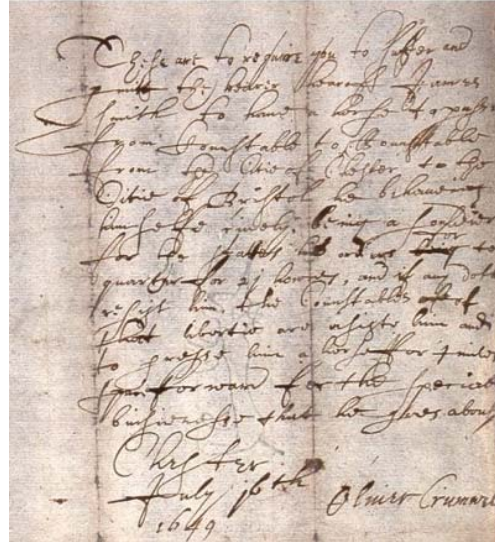 These are to require you to suffer and
permitt the bearer hereof James
Smith to have a horse & to passe
from Counstable to Counstable
from the Citie of Chester to the
Citie of Bristol he behaveing
himselfe cively being a
for the
quarter for 24 howres, and if any doth
resist him, the Counstables of
that libertie are assiste him and
to presse him a horse for miles
space forward for the speciall
buishenesse that he goes about
Chester
July 16th Oliver Crumwel
1649